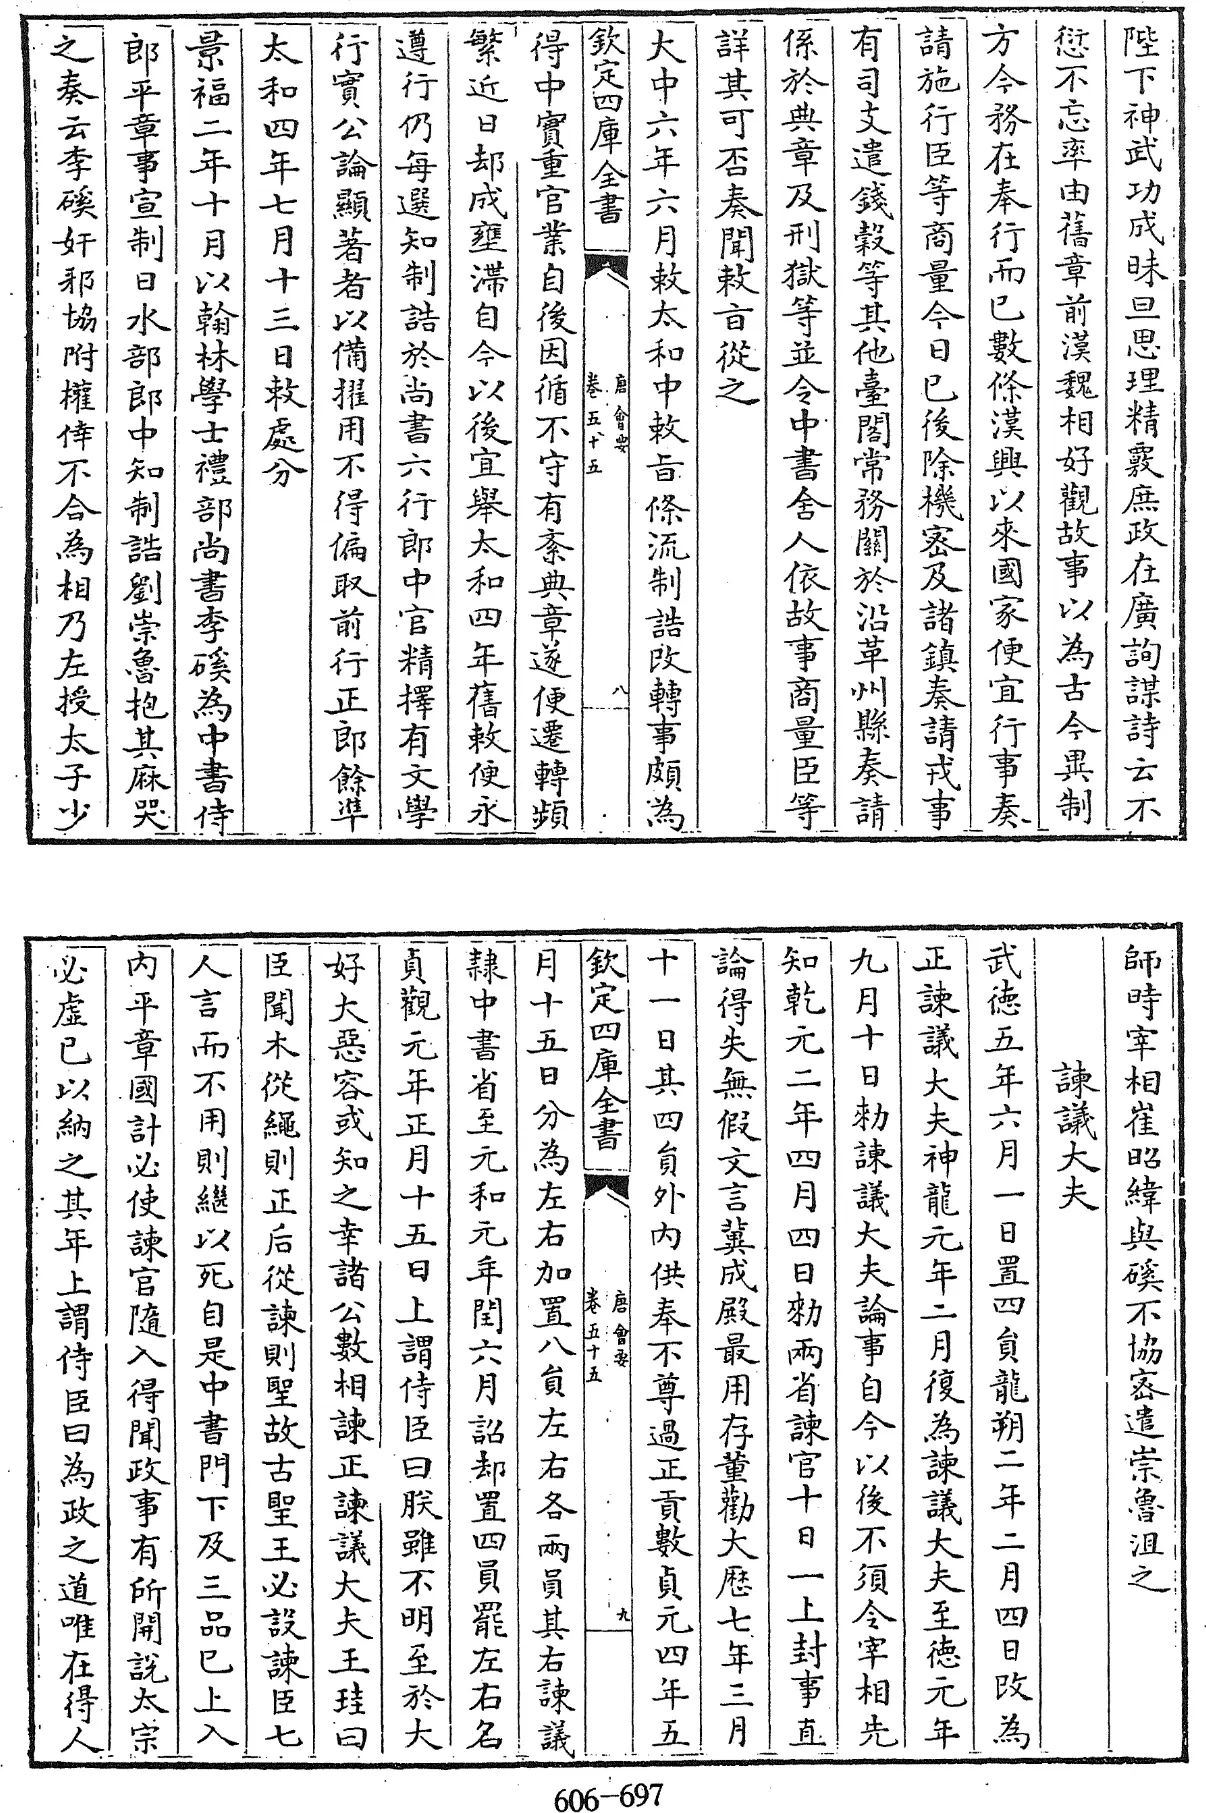 陛下神武功成昧旦思理精覈庶政在廣詢謀詩云不
愆不忘率由舊章前漢魏相好觀故事以為古今異制
方今務在奉行而已數條漢興以來國家便宜行事奏
請施行臣等商量今日已後除機密及諸鎮奏請戎事
有司支遣錢穀等其他臺閣常務關於沿革州縣奏請
係於典章及刑獄等並令中書舍人依故事商量臣等
詳其可否奏聞敕旨從之
大中六年六月敕太和中敕旨條流制誥改轉事頗為
欽定四庫全書
唐會要
卷五十五
八
得中實重官業自後因循不守有紊典章遂便遷轉頻
繁近日却成壅滯自今以後宜舉太和四年舊敕便永
遵行仍每選知制誥於尚書六行郎中官精擇有文學
行實公論顯著者以備擢用不得偏取前行正郎餘準
太和四年七月十三日敕處分
景福二年十月以翰林學士禮部尚書李磎為中書侍
郎平章事宣制日水部郎中知制誥劉崇魯抱其麻哭
之奏云李磎奸邪協附權倖不合為相乃左授太子少
師時宰相崔昭緯與磎不協密遣崇魯沮之
諫議大夫
武德五年六月一日置四員龍朔二年二月四日改為
正諫議大夫神龍元年二月復為諫議大夫至德元年
九月十日勑諫議大夫論事自今以後不須令宰相先
知乾元二年四月四日勑兩省諫官十日一上封事直
論得失無假文言冀成殿最用存董勸大歷七年三月
十一日其四員外內供奉不尊過正貢數貞元四年五
欽定四庫全書
唐會要
卷五十五
九
月十五日分為左右加置八員左右各兩員其右諫議
隸中書省至元和元年閏六月詔却置四員罷左右名
貞觀元年正月十五日上謂侍臣曰朕雖不明至於大
好大惡容或知之幸諸公數相諫正諫議大夫王珪曰
臣聞木從繩則正后從諫則聖故古聖王必設諫臣七
人言而不用則繼以死自是中書門下及三品已上入
內平章國計必使諫官隨入得聞政事有所開說太宗
必虛已以納之其年上謂侍臣曰為政之道唯在得人
606-697